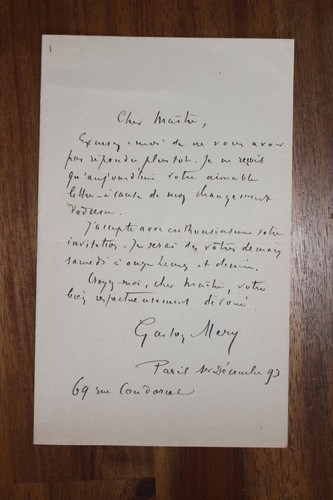 Cher Maître,
Excusez-moi de ne vous avoir
pas répondu plus tôt. Je ne reçois
qu'aujourd'hui votre aimable
lettre à cause de mon changement
d'adresse.
J'accepte avec enthousiasme votre
invitation. Je serai des vôtres demain
samedi à onze heures et demie.
Croyez-moi, cher Maître, votre
bien respectueusement dévoué.
Gaston Mery
Paris 1er Décembre 93
69 rue Condorcet